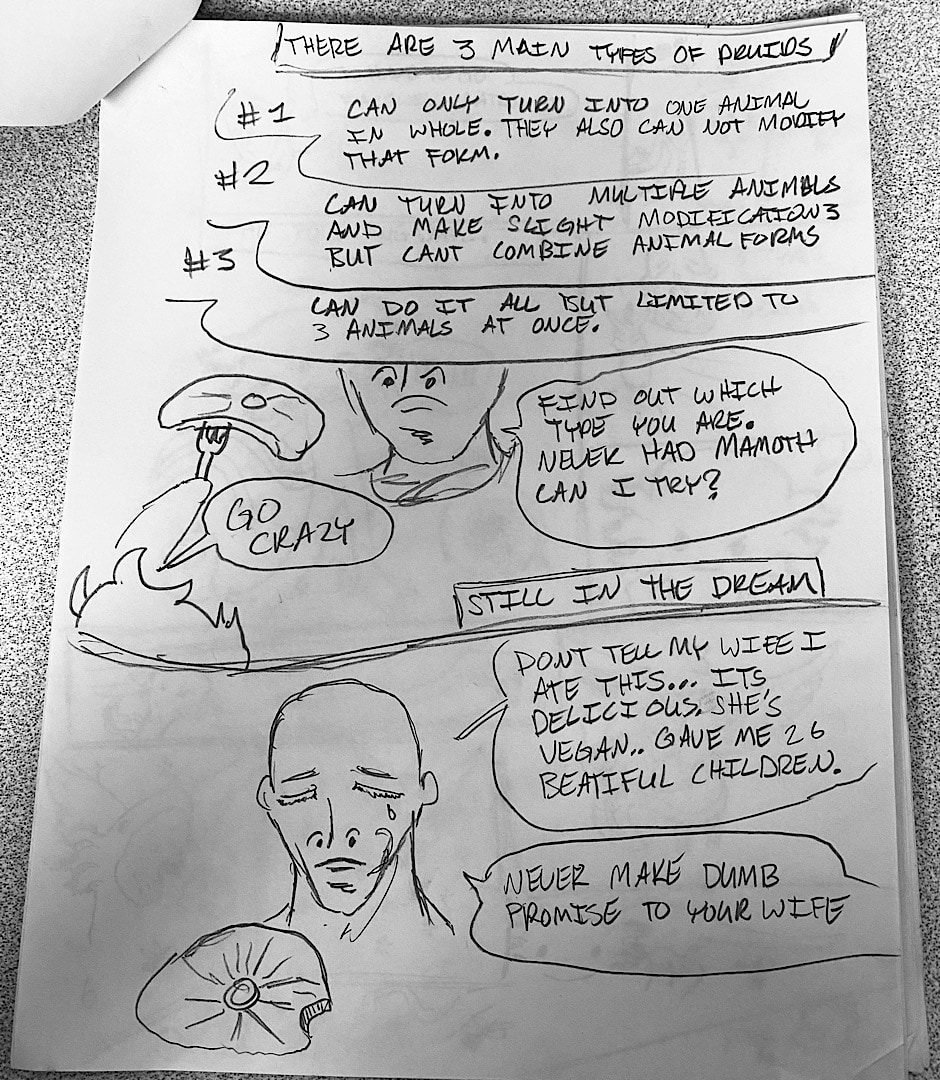 THERE ARE 3 MAIN TYPES OF DRUIDS
#1
CAN ONLY TURN INTO ONE ANIMAL
IN WHOLE. THEY ALSO CAN NOT MODIFY
THAT FORM.
#2
CAN TURN INTO MULTIPLE ANIMALS
AND MAKE SLIGHT MODIFICATIONS
BUT CANT COMBINE ANIMAL FORMS
#3
CAN DO IT ALL BUT LIMITED TO
3 ANIMALS AT ONCE.
FIND OUT WHICH
TYPE YOU ARE.
NEVER HAD MAMOTH
CAN I TRY?
GO
CRAZY
STILL IN THE DREAM
DONT TELL MY WIFE I
ATE THIS... ITS
DELICIOUS. SHE'S
VEGAN.. GAVE ME 26
BEATIFUL CHILDREN.
NEVER MAKE DUMB
PROMISE TO YOUR WIFE